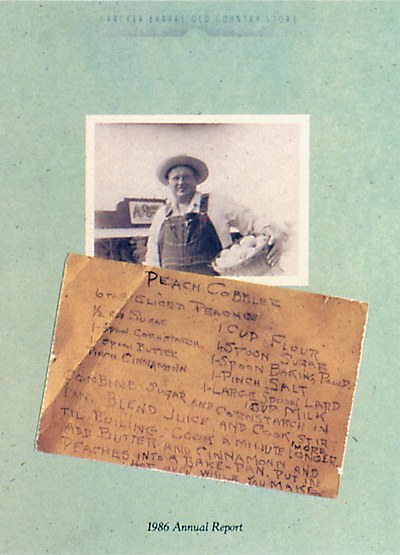 CRACKER BARREL OLD COUNTRY STORE
PEACH COBBLER
6 CUPS SLICED PEACHES
½ CUP SUGAR
1-SPOON CORNSTARCH
SPOON BUTTER
PINCH CINNAMONN
1 CUP FLOUR
1-SPOON SUGAR
1-SPOON BAKING POWD.
1-PINCH SALT
1-LARGE SPOON LARD
CUP MILK
COMBINE SUGAR AND CORNSTARCH IN
PAN. BLEND JUICE AND COOK, STIR
TIL BOILING. COOK A MINUTE MORE
LONGER
ADD BUTTER AND CINNAMONN AND
PEACHES INTO A BAKE-PAN. PUT IN
HOT WHILE YOU MAKE
1986 Annual Report